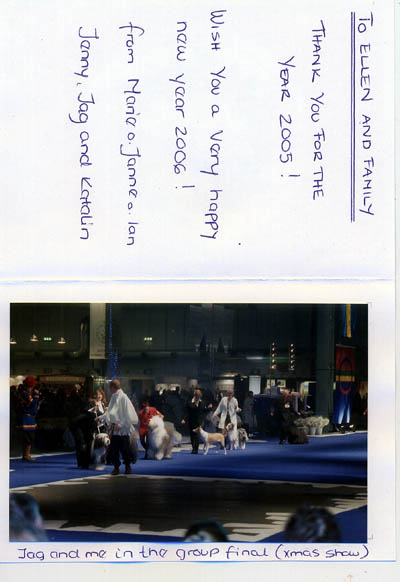 To ELLEN AND FAMILY
THANK YOU FOR THE
YEAR 2005!
WISH You a very happy
new year 2006!
from Marie o. Janne o. Ian
Jenny, Jag and Katalin
Jag and me in the group final (xmas show)